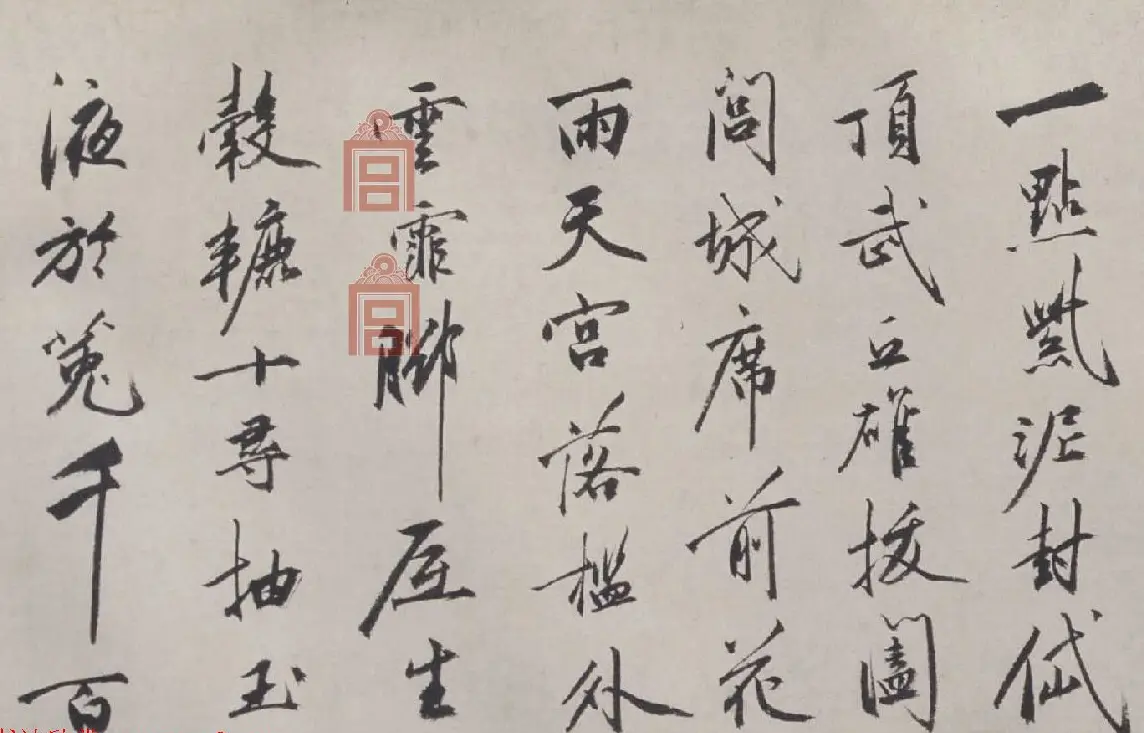 一點紫泥封
頂武丘雄拔闔
閭城席前花
雨天宮落檻外
雲霏脚底生
轂轆十尋抽玉
液於菟千百
宮
宮